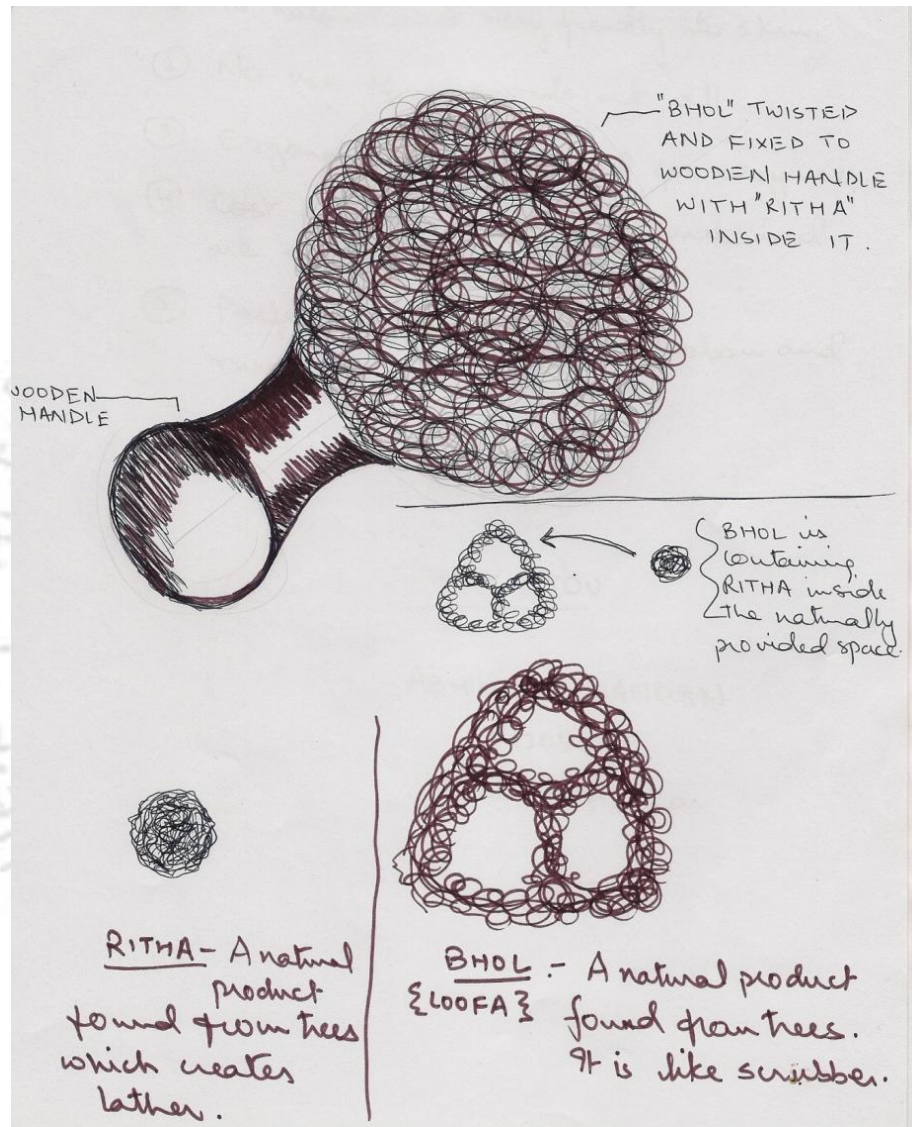 "BHOL" TWISTED
AND FIXED TO
WOODEN HANDLE
WITH "RITHA"
INSIDE IT.
WOODEN
HANDLE
BHOL is
containing
RITHA inside
the naturally
provided space.
RITHA - A natural
product
found from trees
which creates
lather.
BHOL :- A natural product
{LOOFA} found from trees.
It is like scrubber.